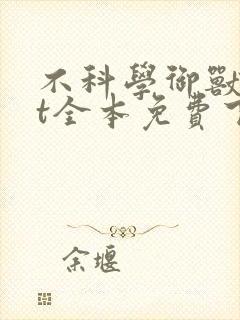 不科學御獸
t全本免費
余堰